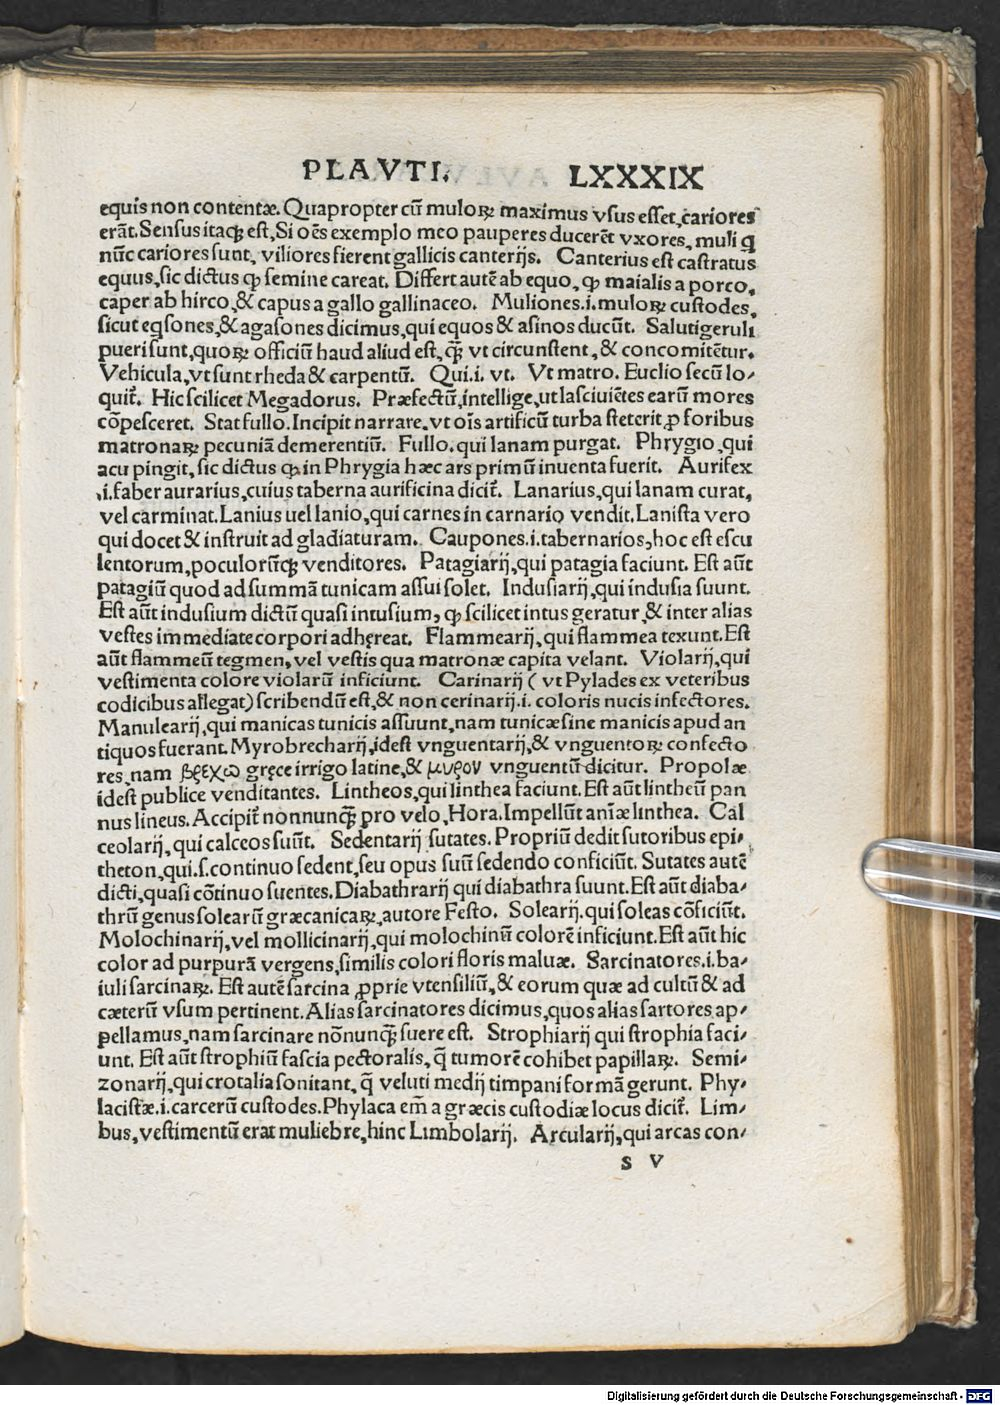 PLAVTI. LXXXIX
equis non contentæ. Quapropter cū muloꝝ maximus vsus esset, cariores
erāt. Sensus itaqꝫ est, Si oēs exemplo meo pauperes ducerēt vxores, muli q̄
nūc cariores sunt, viliores fierent gallicis canterijs. Canterius est castratus
equus, sic dictus ꝙ semine careat. Differt autē ab equo, ꝙ maialis a porco,
caper ab hirco, & capus a gallo gallinaceo. Muliones .i. muloꝝ custodes,
sicut eqsones, & agasones dicimus, qui equos & asinos ducūt. Salutigeruli
pueri sunt, quoꝝ officiū haud aliud est, q̄ꝫ vt circunstent, & concomitētur.
Vehicula, vt sunt rheda & carpentū. Qui .i. vt. Vt matro. Euclio secū lo-
quit̄. Hic scilicet Megadorus. Præfectū, intellige, ut lasciuiētes earū mores
cōpesceret. Stat fullo. Incipit narrare, vt oīs artificū turba steterit ꝓ foribus
matronaꝝ pecuniā demerentiū. Fullo. qui lanam purgat. Phrygio, qui
acu pingit, sic dictus ꝙ in Phrygia hæc ars primū inuenta fuerit. Aurifex
.i. faber aurarius, cuius taberna aurificina dicit̄. Lanarius, qui lanam curat,
vel carminat. Lanius uel lanio, qui carnes in carnario vendit. Lanista vero
qui docet & instruit ad gladiaturam. Caupones .i. tabernarios, hoc est escu
lentorum, poculorūqꝫ venditores. Patagiarij, qui patagia faciunt. Est aūt
patagiū quod ad summā tunicam assui solet. Indusiarij, qui indusia suunt.
Est aūt indusium dictū quasi intusium, ꝙ scilicet intus geratur, & inter alias
vestes immediate corpori adhęreat. Flammearij, qui flammea texunt. Est
aūt flammeū tegmen, vel vestis qua matronæ capita velant. Violarij, qui
vestimenta colore violarū inficiunt. Carinarij ( vt Pylades ex veteribus
codicibus allegat) scribendū est, & non cerinarij .i. coloris nucis infectores.
Manulearij, qui manicas tunicis assuunt, nam tunicæ sine manicis apud an
tiquos fuerant. Myrobrecharij, idest vnguentarij, & vnguentoꝝ confecto
res, nam βρεχω gręce irrigo latine, & μυρον vnguentū dicitur. Propolæ
idest publice venditantes. Lintheos, qui linthea faciunt. Est aūt lintheū pan
nus lineus. Accipit̄ nonnunq̄ꝫ pro velo, Hora. Impellūt aniæ linthea. Cal
ceolarij, qui calceos suūt. Sedentarij sutates. Propriū dedit sutoribus epi-
theton, qui .s. continuo sedent, seu opus suū sedendo conficiūt. Sutates autē
dicti, quasi cōtinuo suentes. Diabathrarij qui diabathra suunt. Est aūt diaba-
thrū genus solearū græcanicaꝝ, autore Festo. Solearij. qui soleas cōficiūt.
Molochinarij, vel mollicinarij, qui molochinū colorē inficiunt. Est aūt hic
color ad purpurā vergens, similis colori floris maluæ. Sarcinatores .i. ba-
iuli sarcinaꝝ. Est autē sarcina ꝓprie vtensiliū, & eorum quæ ad cultū & ad
cæterū vsum pertinent. Alias sarcinatores dicimus, quos alias sartores ap-
pellamus, nam sarcinare nōnunq̄ꝫ suere est. Strophiarij qui strophia faci-
unt. Est aūt strophiū fascia pectoralis, q̄ tumorē cohibet papillaꝝ. Semi-
zonarij, qui crotalia sonitant, q̄ veluti medij timpani formā gerunt. Phy-
lacistæ .i. carcerū custodes. Phylaca em̄ a græcis custodiæ locus dicit̄. Lim-
bus, vestimentū erat muliebre, hinc Limbolarij. Arcularij, qui arcas con-
S V
Digitalisierung gefördert durch die Deutsche Forschungsgemeinschaft - DFG